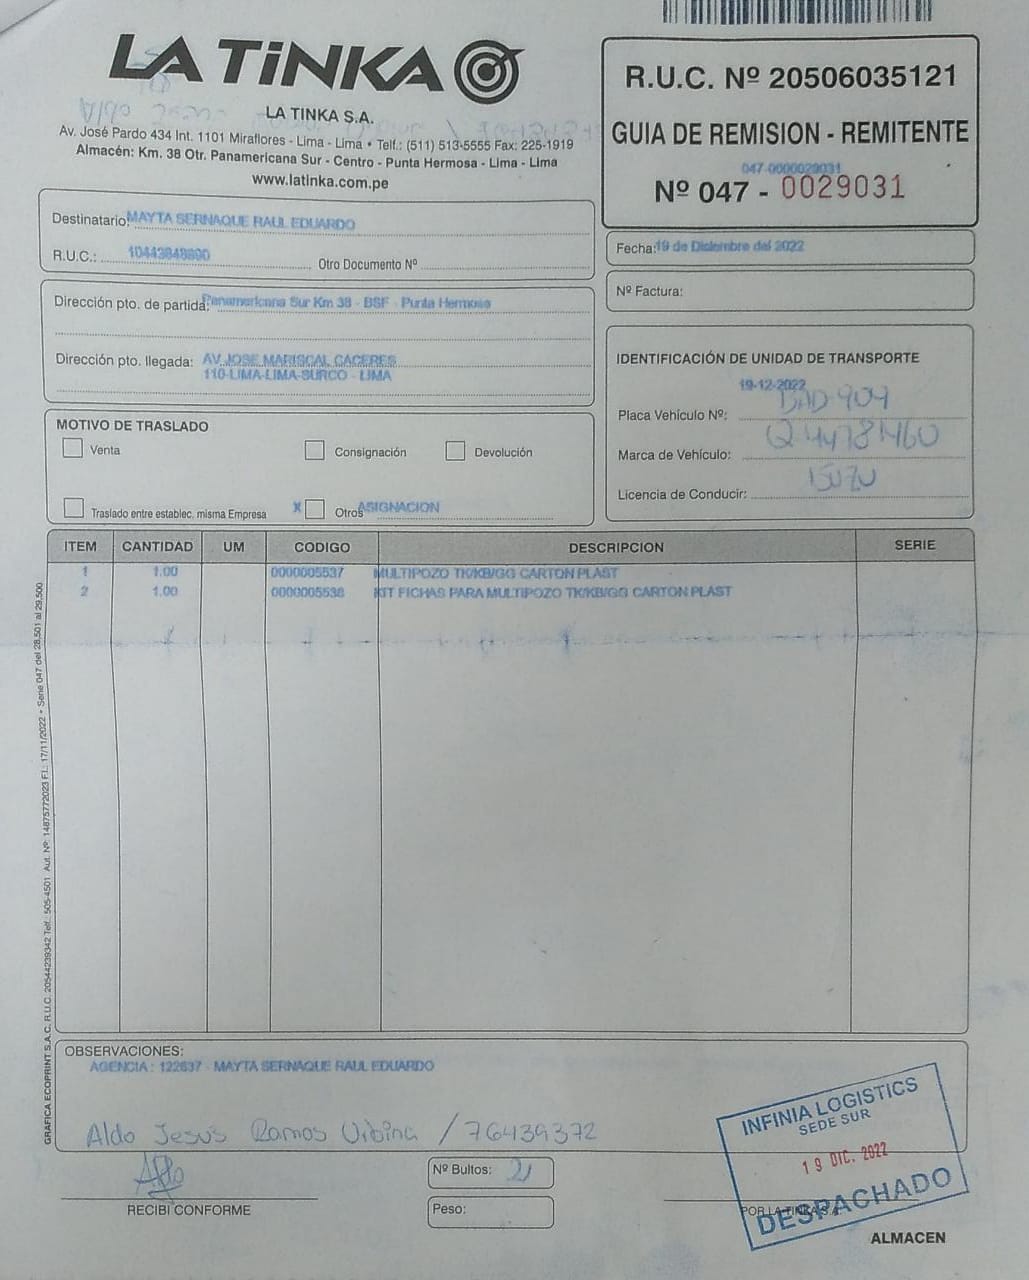 LA TiNKA
LA TINKA S.A.
Av. José Pardo 434 Int. 1101 Miraflores - Lima - Lima • Telf.: (511) 513-5555 Fax: 225-1919
Almacén: Km. 38 Otr. Panamericana Sur - Centro - Punta Hermosa - Lima - Lima
www.latinka.com.pe
R.U.C. Nº 20506035121
GUIA DE REMISION - REMITENTE
047-0000029031
Nº 047 - 0029031
Destinatario: MAYTA SERNAQUE RAUL EDUARDO
R.U.C.: 10443848890
Otro Documento Nº
Fecha: 19 de Diciembre del 2022
Nº Factura:
Dirección pto. de partida: Panamericana Sur Km 38 - BSF - Punta Hermosa
Dirección pto. llegada: AV.JOSE MARISCAL CACERES
110-LIMA-LIMA-SURCO - LIMA
IDENTIFICACIÓN DE UNIDAD DE TRANSPORTE
19-12-2022
Placa Vehículo Nº: BAD-909
Marca de Vehículo:
Licencia de Conducir: ISUZU
MOTIVO DE TRASLADO
Venta
Consignación
Devolución
Traslado entre establec. misma Empresa
X Otros ASIGNACION
ITEM CANTIDAD UM CODIGO DESCRIPCION SERIE
1 1.00 0000005537 MULTIPOZO TK/KB/GG CARTON PLAST
2 1.00 0000005538 KIT FICHAS PARA MULTIPOZO TK/KB/GG CARTON PLAST
GRAFICA ECOPRINT S.A.C. R.U.C. 20544239342 Telf.: 505-4501 Aut. Nº: 14875772023 F.I.: 17/11/2022 • Serie 047 del 28,501 al 29,500
OBSERVACIONES:
AGENCIA : 122637 - MAYTA SERNAQUE RAUL EDUARDO
Aldo Jesus Ramos Urbina / 76439372
RECIBI CONFORME
Nº Bultos: 2
Peso:
INFINIA LOGISTICS
SEDE SUR
19 DIC. 2022
DESPACHADO
POR LA TINKA S.A.
ALMACEN